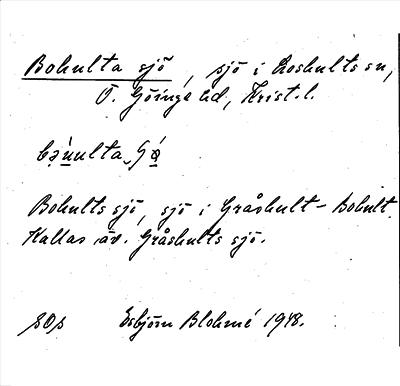 Bohulta sjö, sjö i Loshults sn,
Ö. Göinge hd, Krist. l.
Bohults sjö, sjö i Gråshult-Bohult.
Kallas äv. Gråshults sjö.
SOs Esbjörn Blohmé 1948.